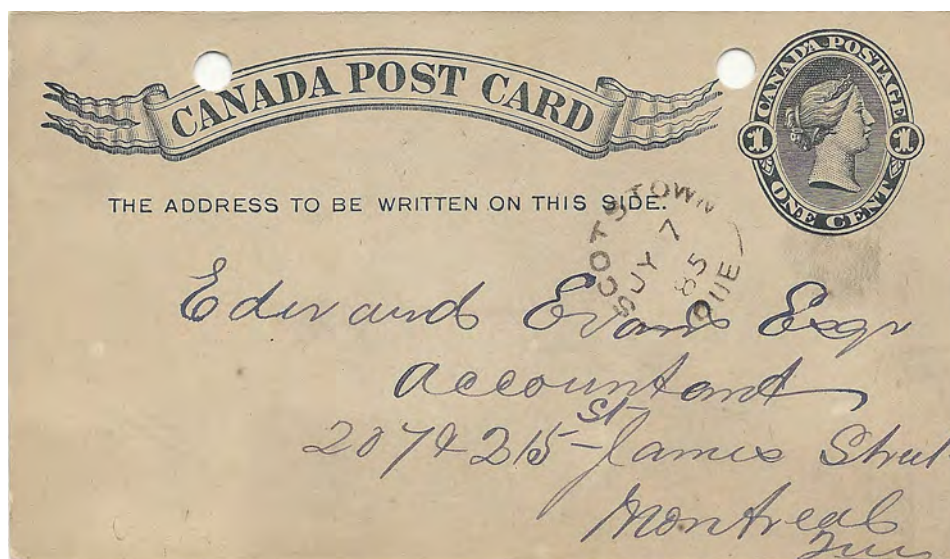 CANADA POST CARD
CANADA POSTAGE
1 1
ONE CENT
THE ADDRESS TO BE WRITTEN ON THIS SIDE.
SCOTSTOWN
JY 7
85
QUE
Edward Evans Esqr
Accountant
207 & 215 St James Street
Montreal